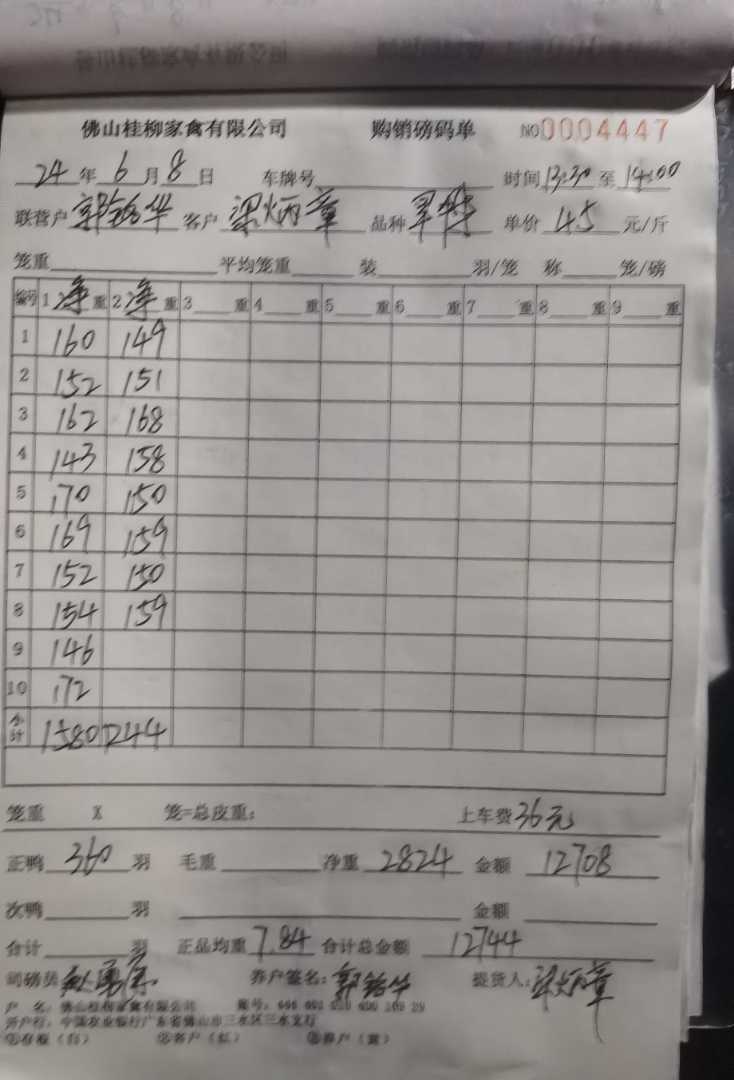 佛山桂柳家禽有限公司 购销磅码单 NO0004447
24年6月8日 车牌号 时间13:30至14:00
联营户 郭铭华 客户 梁炳章 品种 单价 4.5 元/斤
笼重 平均笼重 装 羽/笼 称 笼/磅
编号 1净重 2净重 3 重 4 重 5 重 6 重 7 重 8 重 9 重
1 160 149
2 152 151
3 162 168
4 143 158
5 170 150
6 169 159
7 152 150
8 154 159
9 146
10 172
小计 1580 1244
笼重 X 笼=总皮重: 上车费36元
正鸭 360 羽 毛重 净重 2824 金额 12708
次鸭 羽 金额
合计 羽 正品均重 7.84 合计总金额 12744
司磅员 养户签名: 郭铭华 提货人: 梁炳章
户 名: 佛山桂柳家禽有限公司 账号:
开户行: 中国农业银行广东省佛山市三水区三水支行
①存根(白) ②客户(红) ③养户(黄)